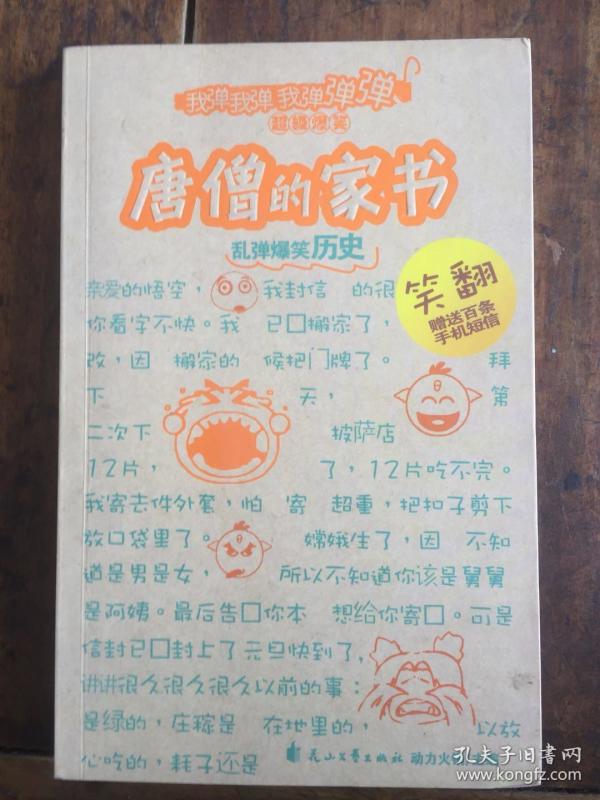 我弹我弹 我弹弹弹
超级爆笑
唐僧的家书
乱弹爆笑历史
笑翻
赠送百条
手机短信
亲爱的悟空， 我封信 的很
你看字不快。我 已口搬家了，
改，因 搬家的 候把门牌了。 拜
下 天， 第
二次下 披萨店
12片， 了，12片吃不完。
我寄去件外套，怕 寄 超重，把扣子剪下
放口袋里了。 嫦娥生了，因 不知
道是男是女， 所以不知道你该是舅舅
是阿姨。最后告口你本 想给你寄口。可是
信封已口封上了 元旦快到了，
讲讲很久很久很久以前的事：
是绿的，庄稼是 在地里的， 以放
心吃的，耗子还是
花山文艺出版社 动力火
孔夫子旧书网
www.kongfz.com